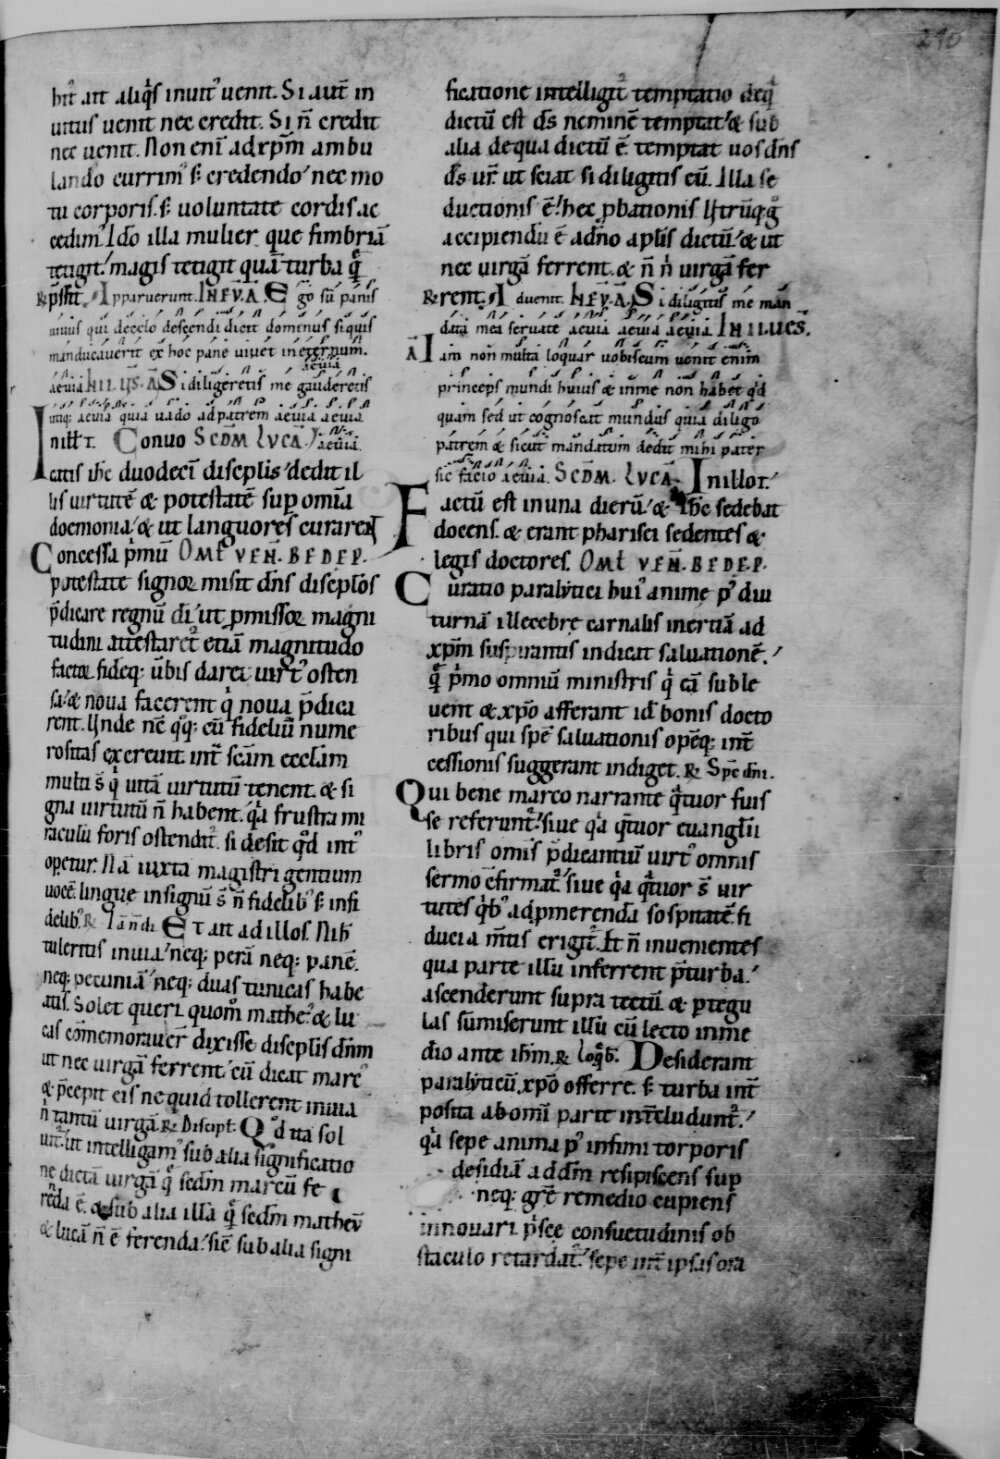 240
bit̃ att aliq̇s inuit᷑ uenit. Si aut̃ in
uitus uenit nec credit. Si ñ credit
nec uenit. Non eni᷑ ad xp̃m ambu
lando currim᷒ s; credendo / nec mo
tu corporis. s; uoluntate cordis ac
cedim᷒. Ido illa mulier que fimbriã
tetigit / magis tetigit quã turba q̃
p̃ssit. Apparuerunt. IN EV. A Ego sũ panis
uiuus qui decelo descendi dicit dominus siquis
manducauerit ex hoc pane uiuet ineternum.
aeuia
aeuia IN LĪS. A Si diligeretis me gauderetis
utiq; aeuia quia uado ad patrem aeuia aeuia
In ill̃ t̃. Conuo SCD̃M LVCÃ. aeuia.
catis ih̃c duodeci᷑ disciplis / dedit il
lis uirtutẽ & potestatẽ sup omĩa
doemonia / & ut languores curarent
Concessa p̃mũ OM̃L VEÑ. BEDE. P.
potestate signoꝝ misit dñs discip̃los
p̃dicare regnũ di᷑ / ut p̱missoꝝ magni
tudini attestaret᷑ etiã magnitudo
factoꝝ. fideq; ũbis daret uirt᷒ osten
sa / & noua facerent q̇ noua p̃dica
rent. Unde nẽ q̊q; cũ fideliũ nume
rositas excreuit. int̃ scãm eccl̃am
multi s̃ q̇ uitã uirtutũ tenent. & si
gna uirtutũ ñ habent. q̇a frustra mi
raculũ foris ostendit᷑. si desit q̇d int᷒
operur. Nã iuxta magistri gentium
uocẽ. lingue insigniũ s̃ ñ fidelib᷒ s; infi
delib᷒. ℟ Iañdi Et ait ad illos. Nih̃
tuleritis inuia / neq; perã neq; panẽ.
neq; pecuniã / neq; duas tunicas habe
atis. Solet queri quom̊ mathe᷒ & lu
cas cõmemorauer̃ dixisse discip̃lis dñm
ut nec uirgã ferrent / cũ dicat marc᷒
& p̃cepit eis ne quid tollerent inuia
ñ tantũ uirgã. ℟ Discipl: Qd̃ ita sol
uit᷑ / ut intelligam᷒ sub alia significatio
ne dictã uirgã q̃ scd̃m marcũ fe
rẽda ẽ. & sub alia illã q̃ scd̃m matheũ
& lucã ñ ẽ ferenda / sic̃ sub alia signi
ficatione intelligit᷑ temptatio de q̇
dictũ est dš neminẽ temptat / & sub
alia de qua dictũ ẽ. temptat uos dñs
dš ur̃. ut sciat si diligitis eũ. Illa se
ductionis ẽ / hec p̱bationis. Utrũq; g̊
accipiendũ ẽ a dño ap̃lis dictũ / & ut
nec uirgã ferrent. & ñ ñ uirgã fer
℟rent. Iduenit. IN EV. A Si diligitis me man
data mea seruate aeuia aeuia aeuia. IN LAUEŠ.
Ã Iam non multa loquar uobiscum uenit enim
princeps mundi huius & inme non habet q̇d
quam sed ut cognoscat mundus quia diligo
patrem & sicut mandatum dedit mihi pater
sic facio aeuia. SCD̃M. LVCÃ. In illo t̃.
Factũ est in una dierũ / & ih̃c sedebat
docens. & erant pharisei sedentes &
legis doctores. OM̃L VEÑ. BEDE. P.
Curatio paralytici hui᷒ anime p᷒ diu
turnã illecebre carnalis inertiã ad
xp̃m suspirantis indicat saluationẽ.
q̃ p̃mo omniũ ministris q̇ eã suble
uent & xp̃o afferant id̃ bonis docto
ribus qui spẽ saluationis opẽq; int̃
cessionis suggerant indiget. ℟ Spe dñi.
Qui bene marco narrante q̃tuor fuis
se referunt᷑ / siue q̇a q̃tuor euangl̃ii
libris omis̃ p̃dicantiũ uirt᷒ omnis
sermo c̃firmat᷑ / siue q̇a q̃tuor s̃ uir
tutes q̇b᷒ ad p̱merendã sospitatẽ fi
ducia m̃tis erigit᷑. Et ñ inuenientes
qua parte illũ inferrent p̃ turba /
ascenderunt supra tectũ & p̱ tegu
las sũmiserunt illũ cũ lecto inme
dio ante ih̃m. ℟ Loq̃b᷒. Desiderant
paralyticũ xp̃o offerre. s; turba int̃
posita ab omi᷑ parte int̃cludunt᷑ /
q̇a sepe anima p᷒ infimi torporis
desidiã ad dm̃ resipiscens sup
neq; grẽ remedio cupiens
innouari. p̃sce consuetudinis ob
staculo retardat᷑ / sepe int̃ ipsas ora